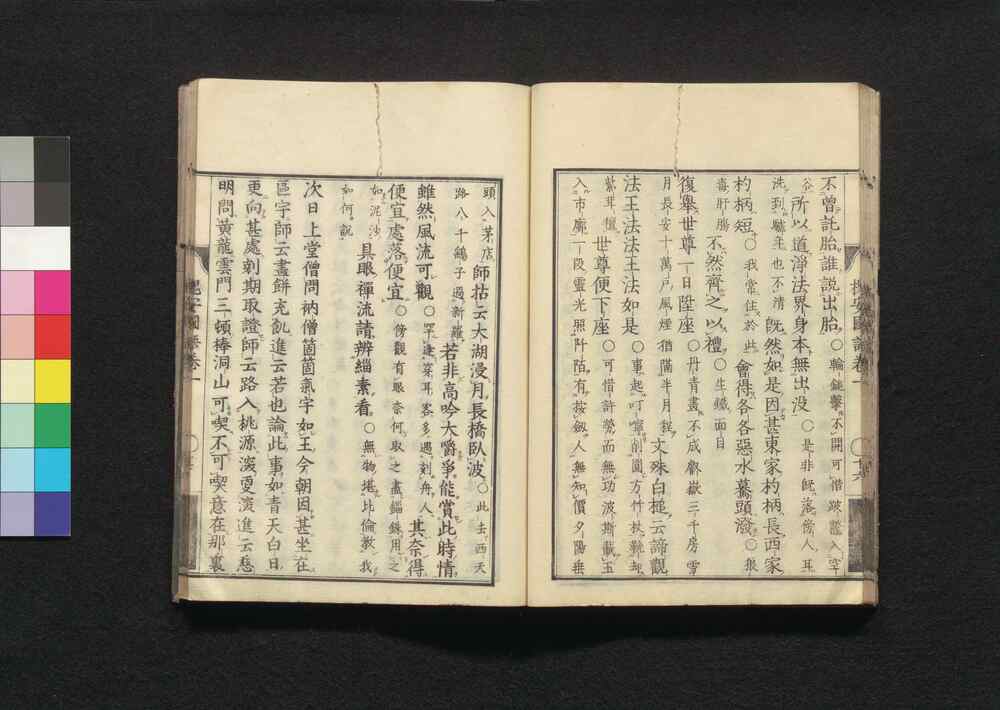 不曾託胎誰說出胎○輪鎚擊不開可惜跛鼈入空
谷所以道淨法界身本無出没○是非旣落傍人耳
洗到驢年也不清旣然如是因甚東家杓柄長西家
杓柄短○我常住於此會得各各惡水驀頭潑○狠
毒肝膓不然齊之以禮○生鐵面目
復舉世尊一日陞座○丹青畫不成嶽三千房雪
月長安十萬戸風煙猶隔半月程文殊白槌云諦觀
法王法法王法如是○事起叮嚀削圓方竹杖鞔却
紫茸氊世尊便下座○可惜許勞而無功波斯載玉
入市廓一段靈光照阡陌有按劔人無知價夕陽垂
槐安國語卷一
頭入茅店師拈云大湖浸月長橋臥波○此去西天
路八千鷂子過新羅若非高吟大嚼爭能賞此時情
雖然風流可觀○罕逢穿耳客多遇刻舟人其奈得
便宜處落便宜○傍觀有眼奈何取之盡錙銖用之
如泥沙具眼禪流請辨緇素看○無物堪比倫敎我
如何說
次日上堂僧問衲僧箇箇氣宇如王今朝因甚坐在
區宇師云畫餅充飢進云若也論此事如青天白日
更向甚處剋期取證師云路入桃源深更深進云慈
明問黃龍雲門三頓棒洞山可喫不可喫意在那裏
槐安國語卷一